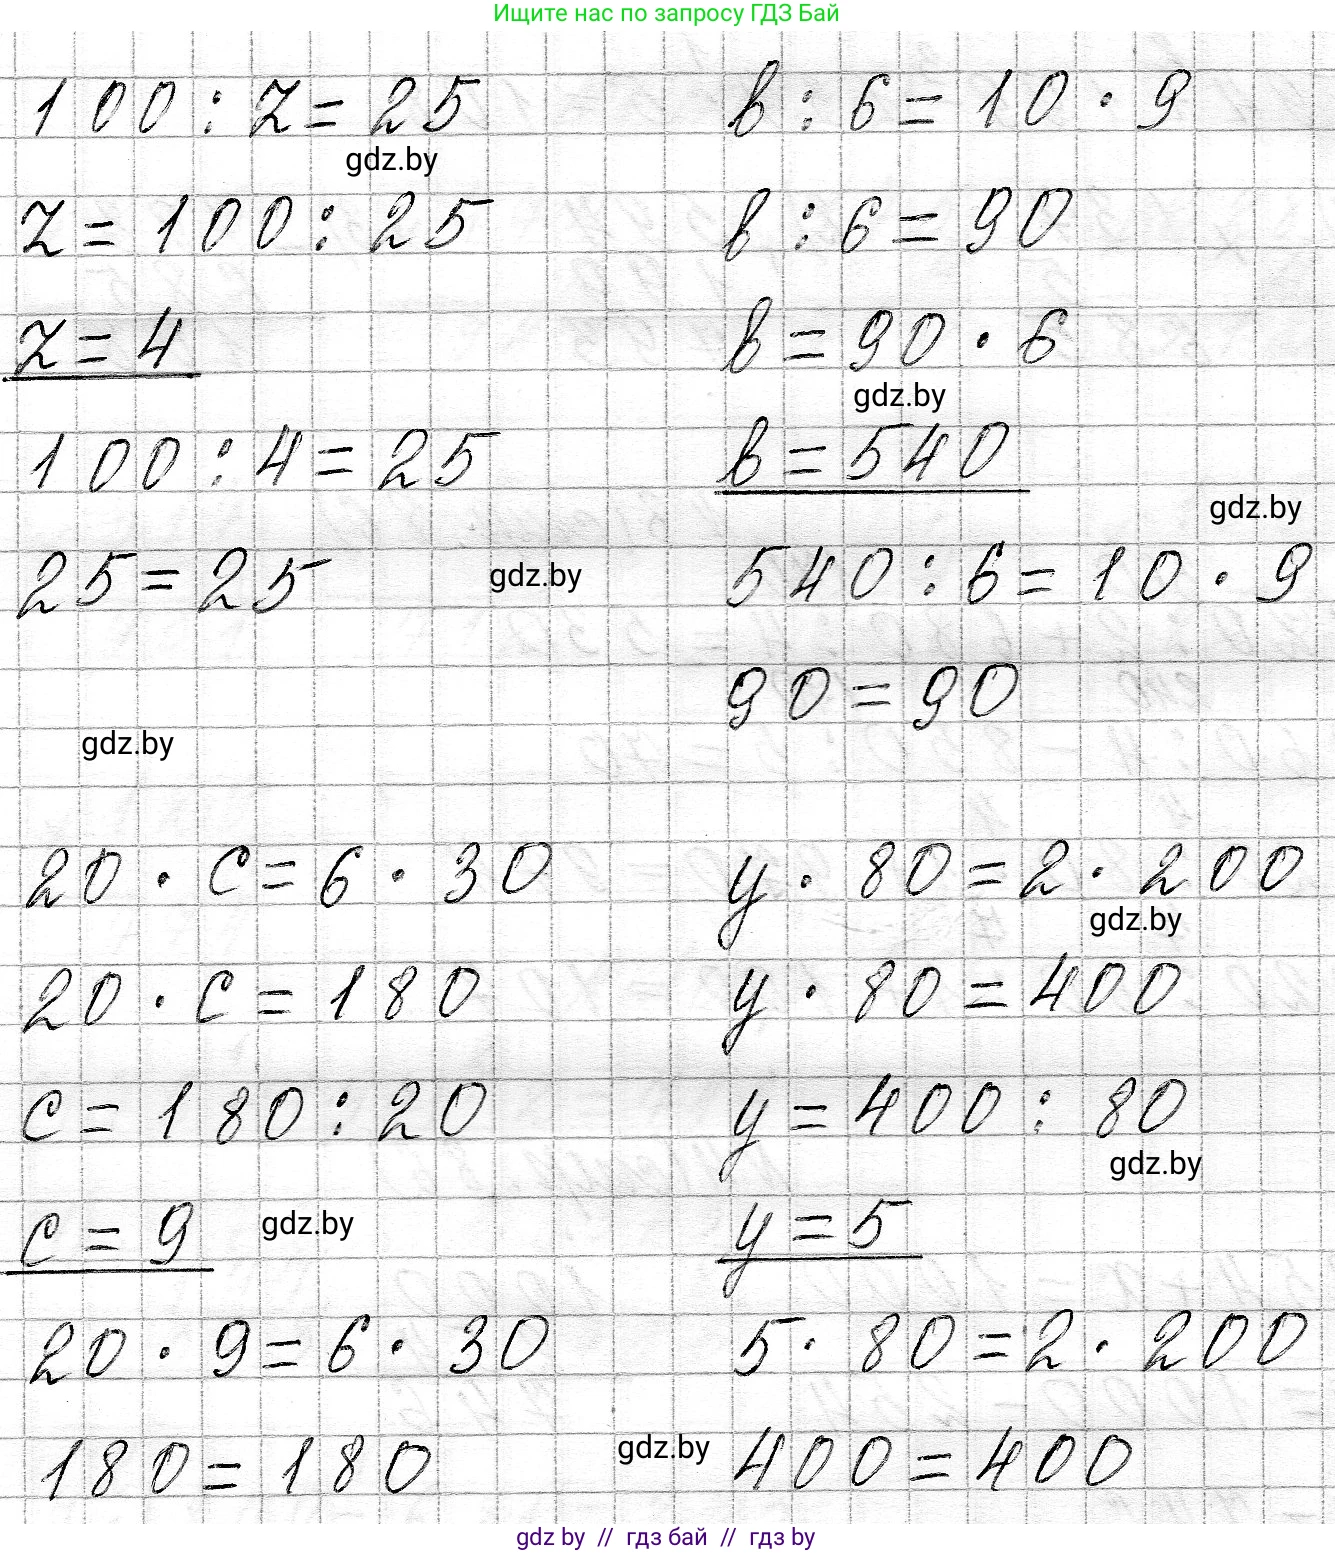 Ищите нас по запросу ГДЗ Бай
100 : z = 25
gdz.by
z = 100 : 25
z = 4
100 : 4 = 25
25 = 25
gdz.by
в : 6 = 10 · 9
в : 6 = 90
в = 90 · 6
gdz.by
в = 540
gdz.by
540 : 6 = 10 · 9
90 = 90
gdz.by
20 · c = 6 · 30
20 · c = 180
c = 180 : 20
c = 9
gdz.by
20 · 9 = 6 · 30
180 = 180
y · 80 = 2 · 200
gdz.by
y · 80 = 400
y = 400 : 80
gdz.by
y = 5
5 · 80 = 2 · 200
gdz.by
400 = 400
gdz by // гдз бай // гдз by